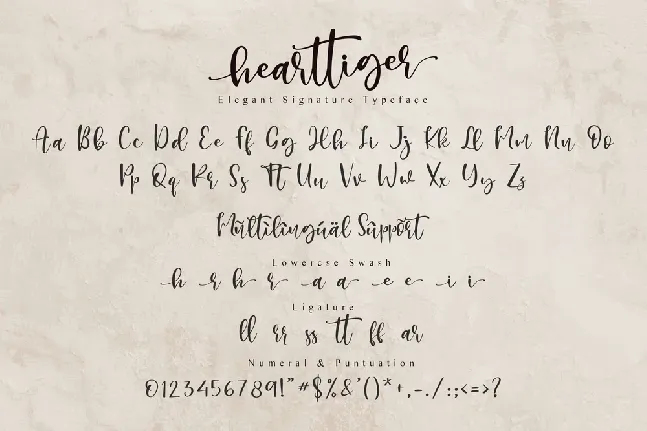 hearttiger
Elegant Signature Typeface
Aa Bb Cc Dd Ee Ff Gg Hh Ii Jj Kk Ll Mm Nn Oo
Pp Qq Rr Ss Tt Uu Vv Ww Xx Yy Zz
Mùltilingúäl Sûppõrt
Lowercse Swash
h r h r a a e e i i
Ligature
ll rr ss tt ff ar
Numeral & Puntuation
0123456789!"#$%&'()*+,-./:;<=>?